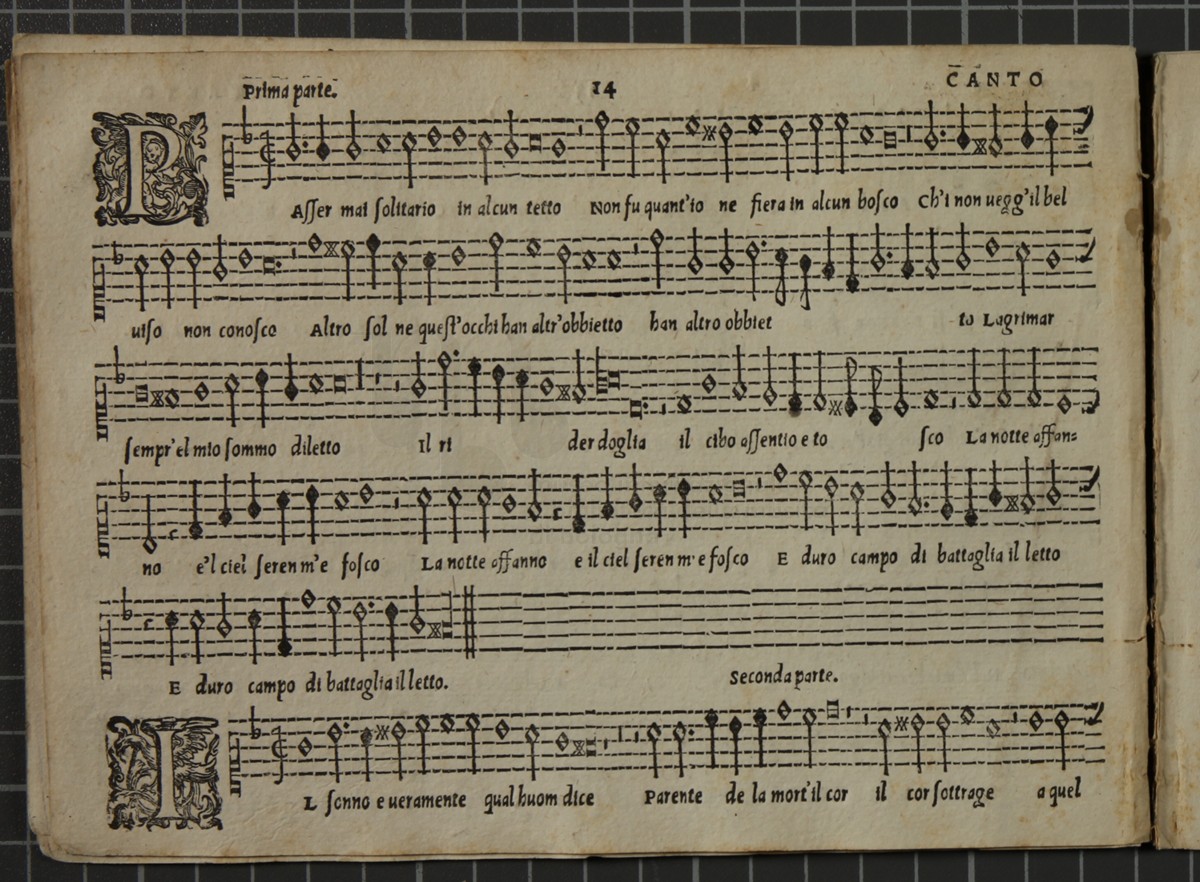 Prima parte. 14 CANTO
P Aſſer mai ſolitario in alcun tetto Non fu quant'io ne fiera in alcun boſco Ch'i non uegg'il bel
uiſo non conoſco Altro ſol ne queſt'occhi han altr'obbietto han altro obbiet to Lagrimar
ſempr'el mio ſommo diletto Il ri der doglia il cibo aſſentio e to ſco La notte affan=
no e'l ciel ſeren m'e foſco La notte affanno e il ciel ſeren m'e foſco E duro campo di battaglia il letto
E duro campo di battaglia il letto. Seconda parte.
I L ſonno e ueramente qual huom dice Parente de la mort'il cor il cor ſottrage a quel